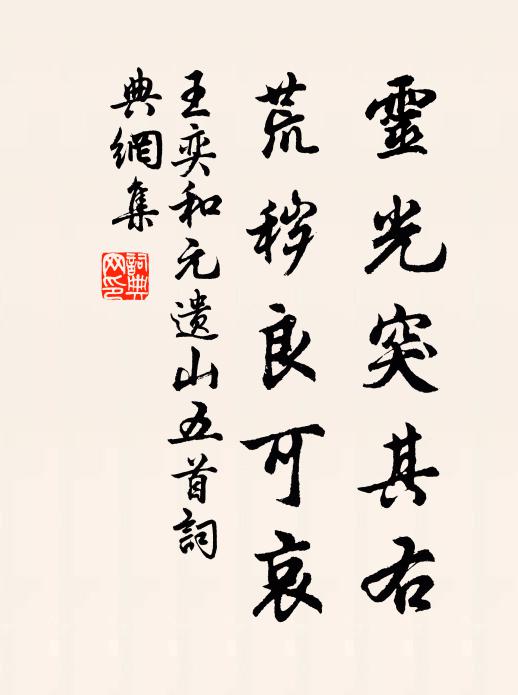 靈光突其右
荒穢良可哀
王奕和元遺山五首詞
典網集
詞典網印